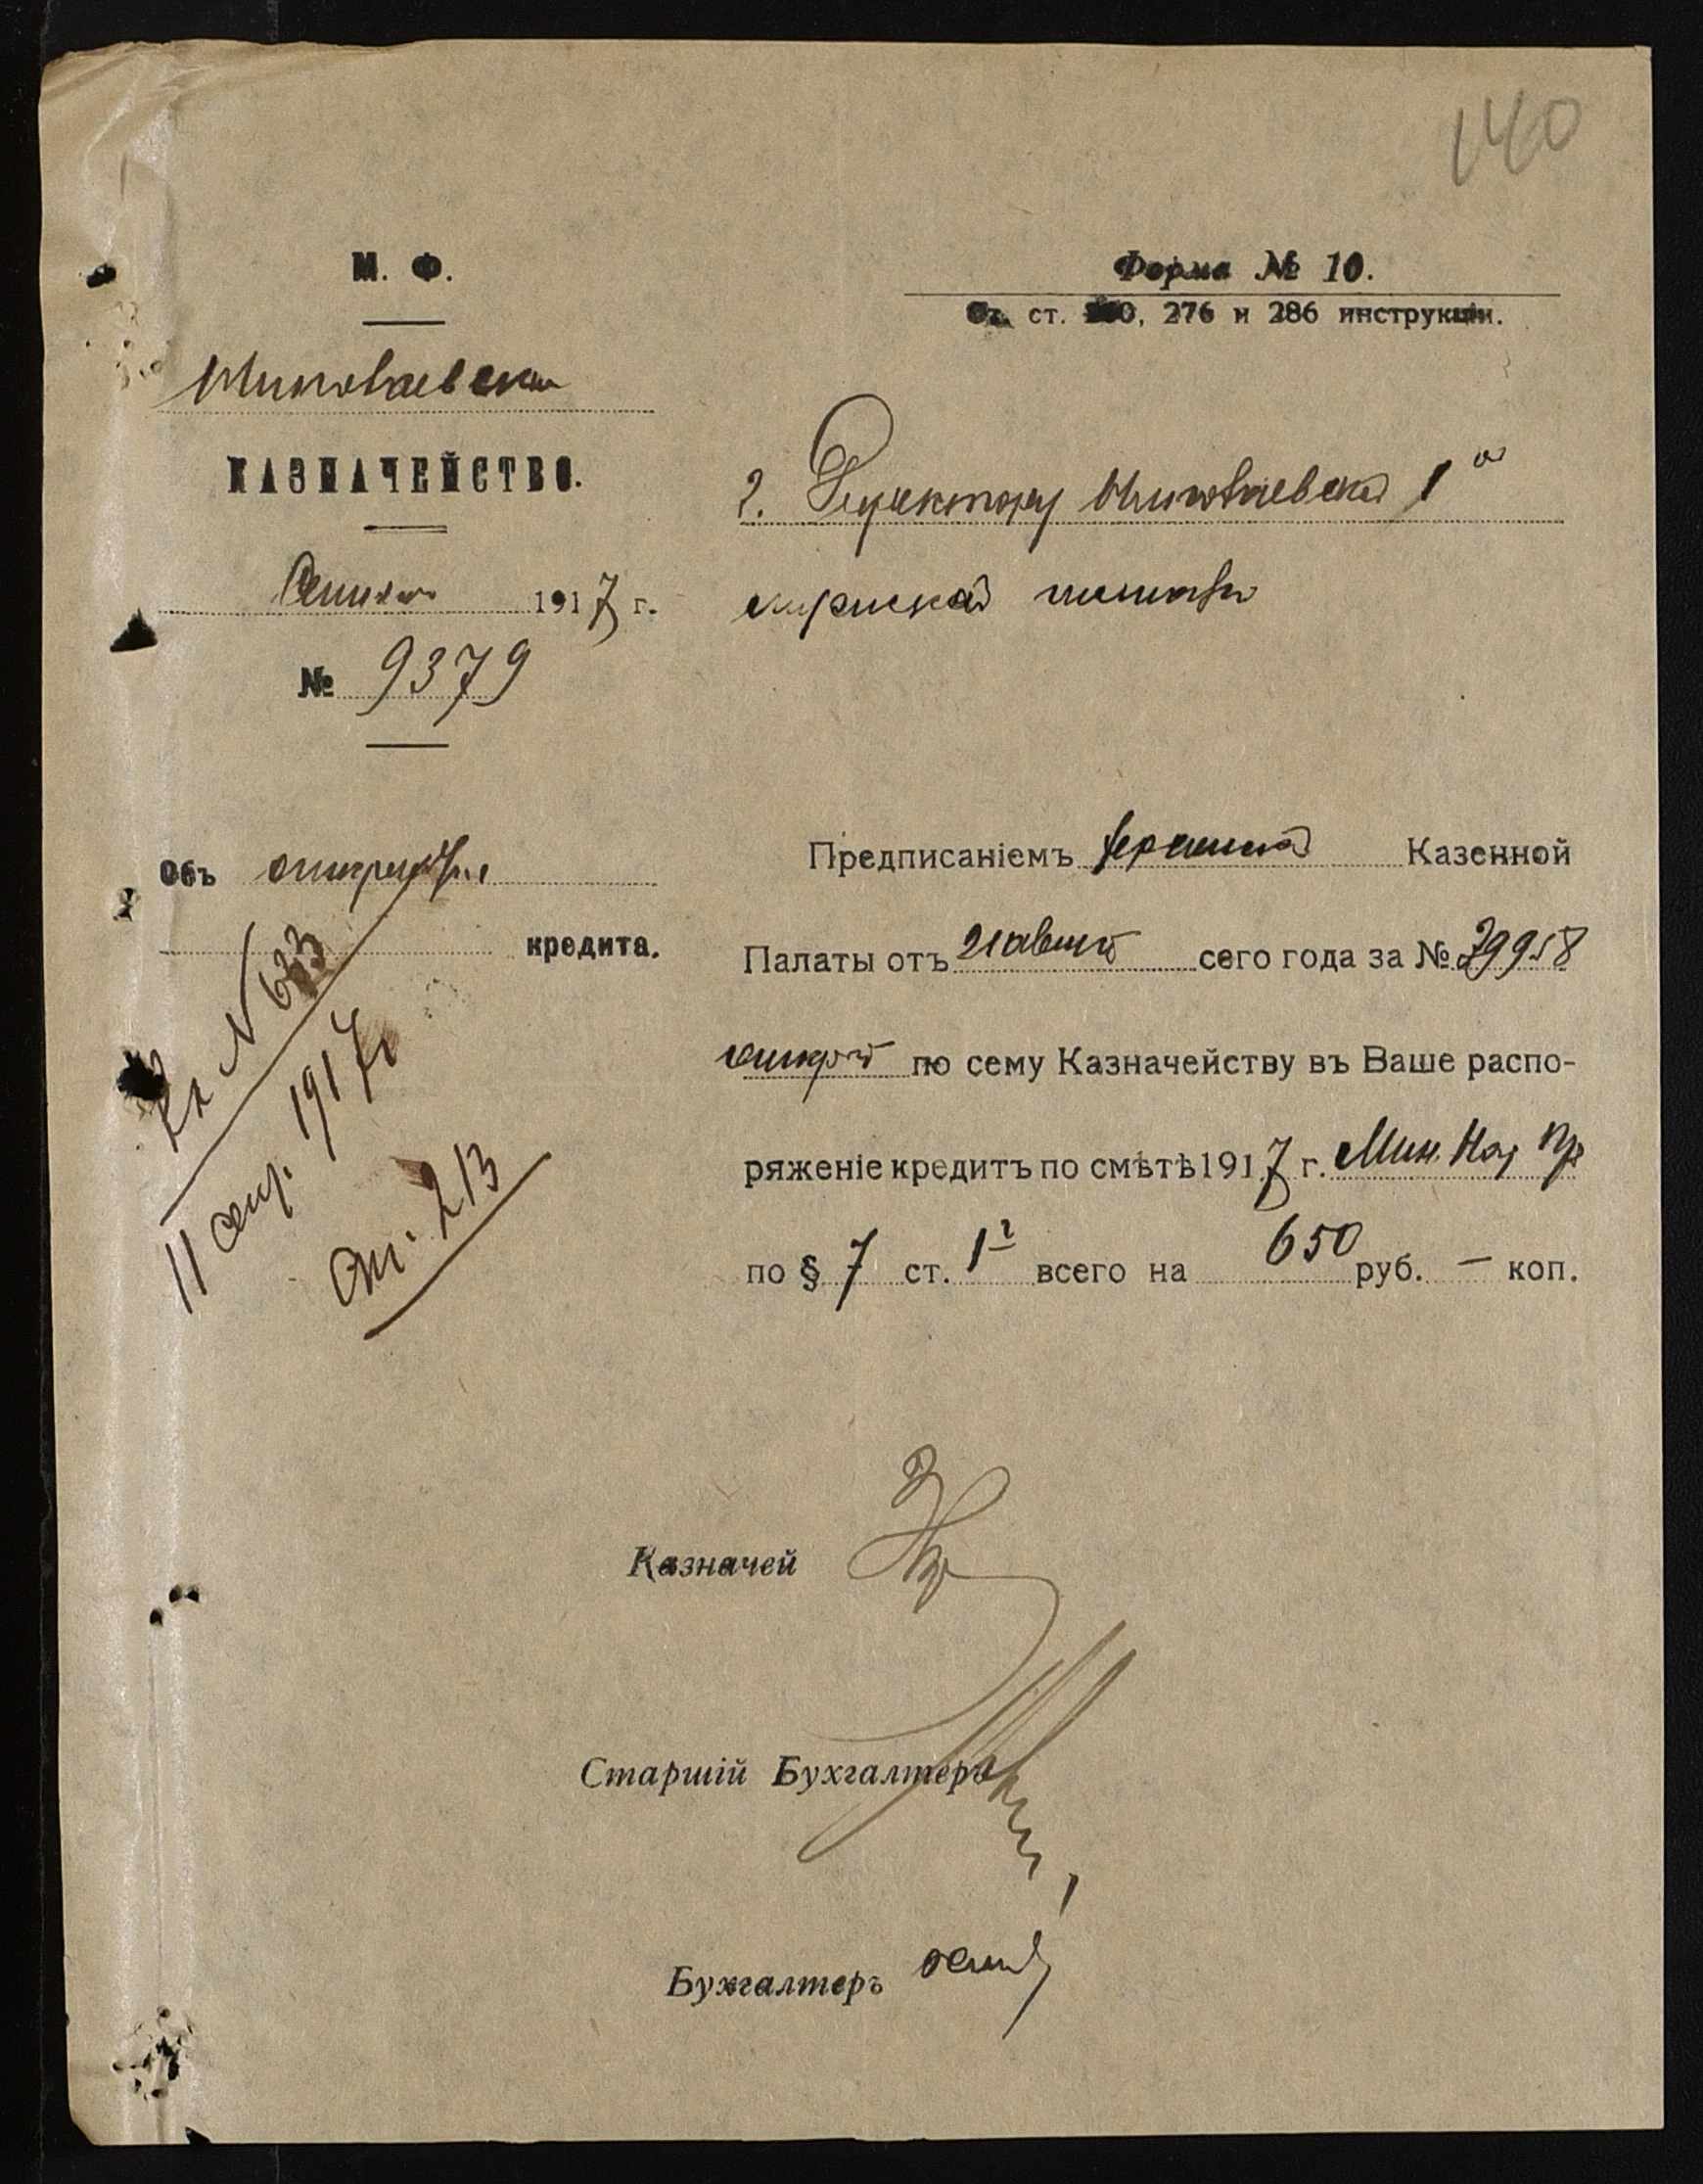 140
М. Ф.
Николаевское
КАЗНАЧЕЙСТВО.
1917 г.
№ 9379
Объ открытіи
кредита.
Вх № 633
11 сент. 1917 г
От. 213
Форма № 10.
Къ ст. 276 и 286 инструкціи.
Г. Директору Николаевской 1ой
гимназіи
Предписаніемъ Херсонской Казенной
Палаты отъ 21 августа сего года за № 29958
открытъ по сему Казначейству въ Ваше распо-
ряженіе кредитъ по смѣтѣ 1917 г. Мин. Нар Пр
по § 7 ст. 1 всего на 650 руб. — коп.
Казначей
Старшій Бухгалтеръ
Бухгалтеръ